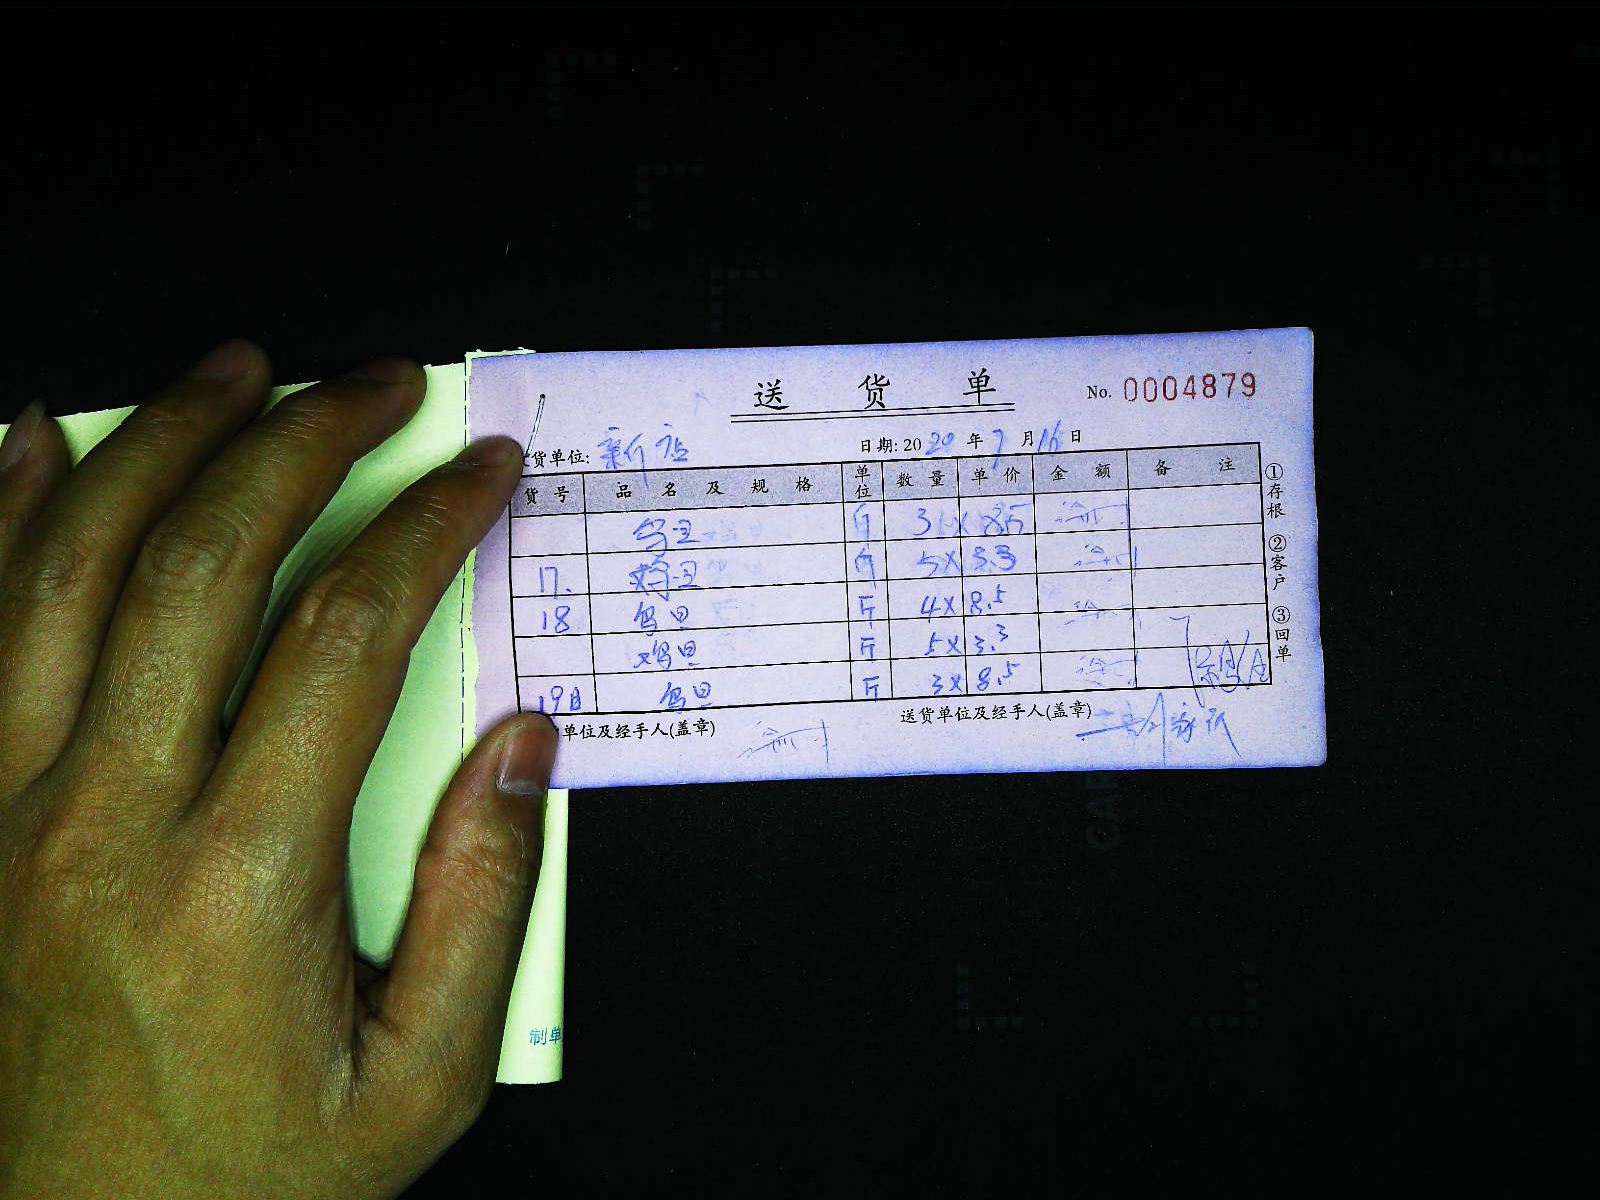 送货单
No. 0004879
货单位: 新店
日期: 2020年7月16日
货号 品名及规格 单位 数量 单价 金额 备注
斤 3 X 8.5
17. 鸡旦 斤 5X 3.3
18 鸟旦 斤 4X 8.5
鸡旦 斤 5X 3.3
19日 鸟旦 斤 3X 8.5
①存根 ②客户 ③回单
单位及经手人(盖章)
送货单位及经手人(盖章)
制单